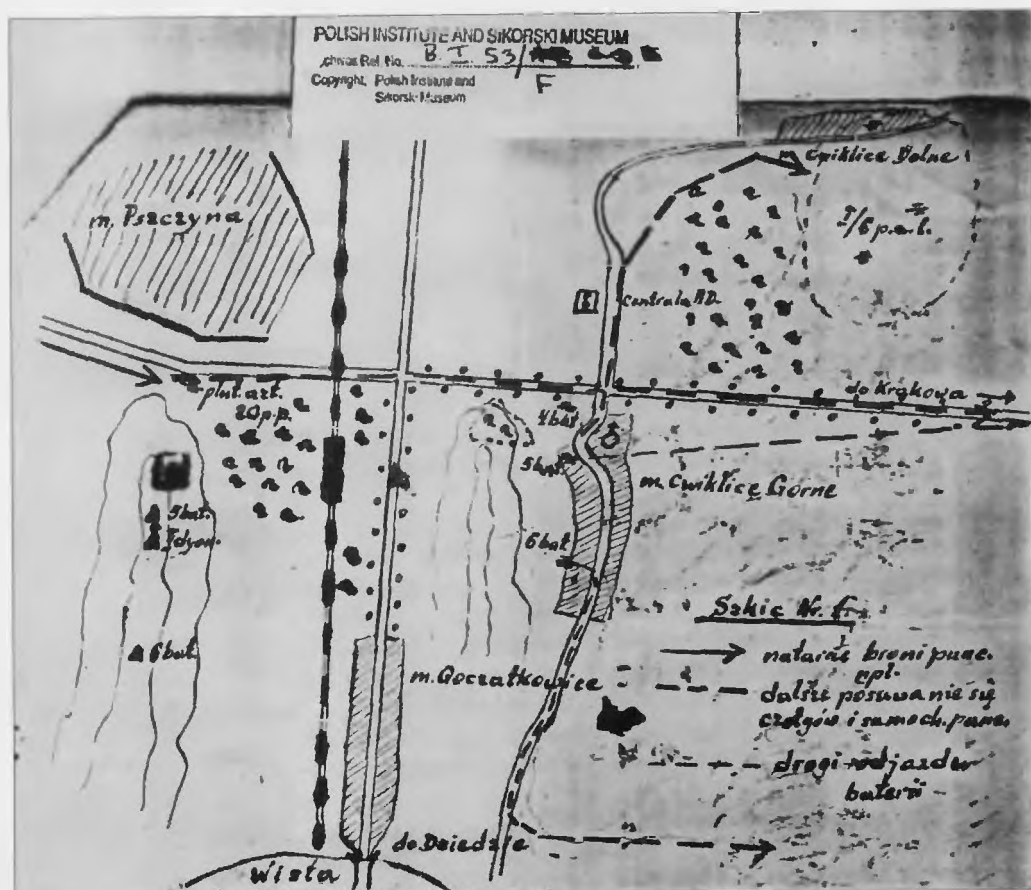 POLISH INSTITUTE AND SIKORSKI MUSEUM
Archives Ref. No. B. I. 53/
F
Copyright, Polish Institute and
Sikorski Museum
m. Pszczyna
m. Cwiklice Dolne
I/6 p.a.l.
centrala A.D.
plut. art.
20 p.p.
do Krakowa
4 bat.
5 bat.
m. Cwiklice Górne
5 bat.
6 bat
6 bat.
Szkic Nr.
m. Goczałkowice
natarcie broni panc.
npl.
dalsze posuwanie się
czołgów i samoch. panc.
drogi odjazdów
baterii
do Dziedzic
Wisła